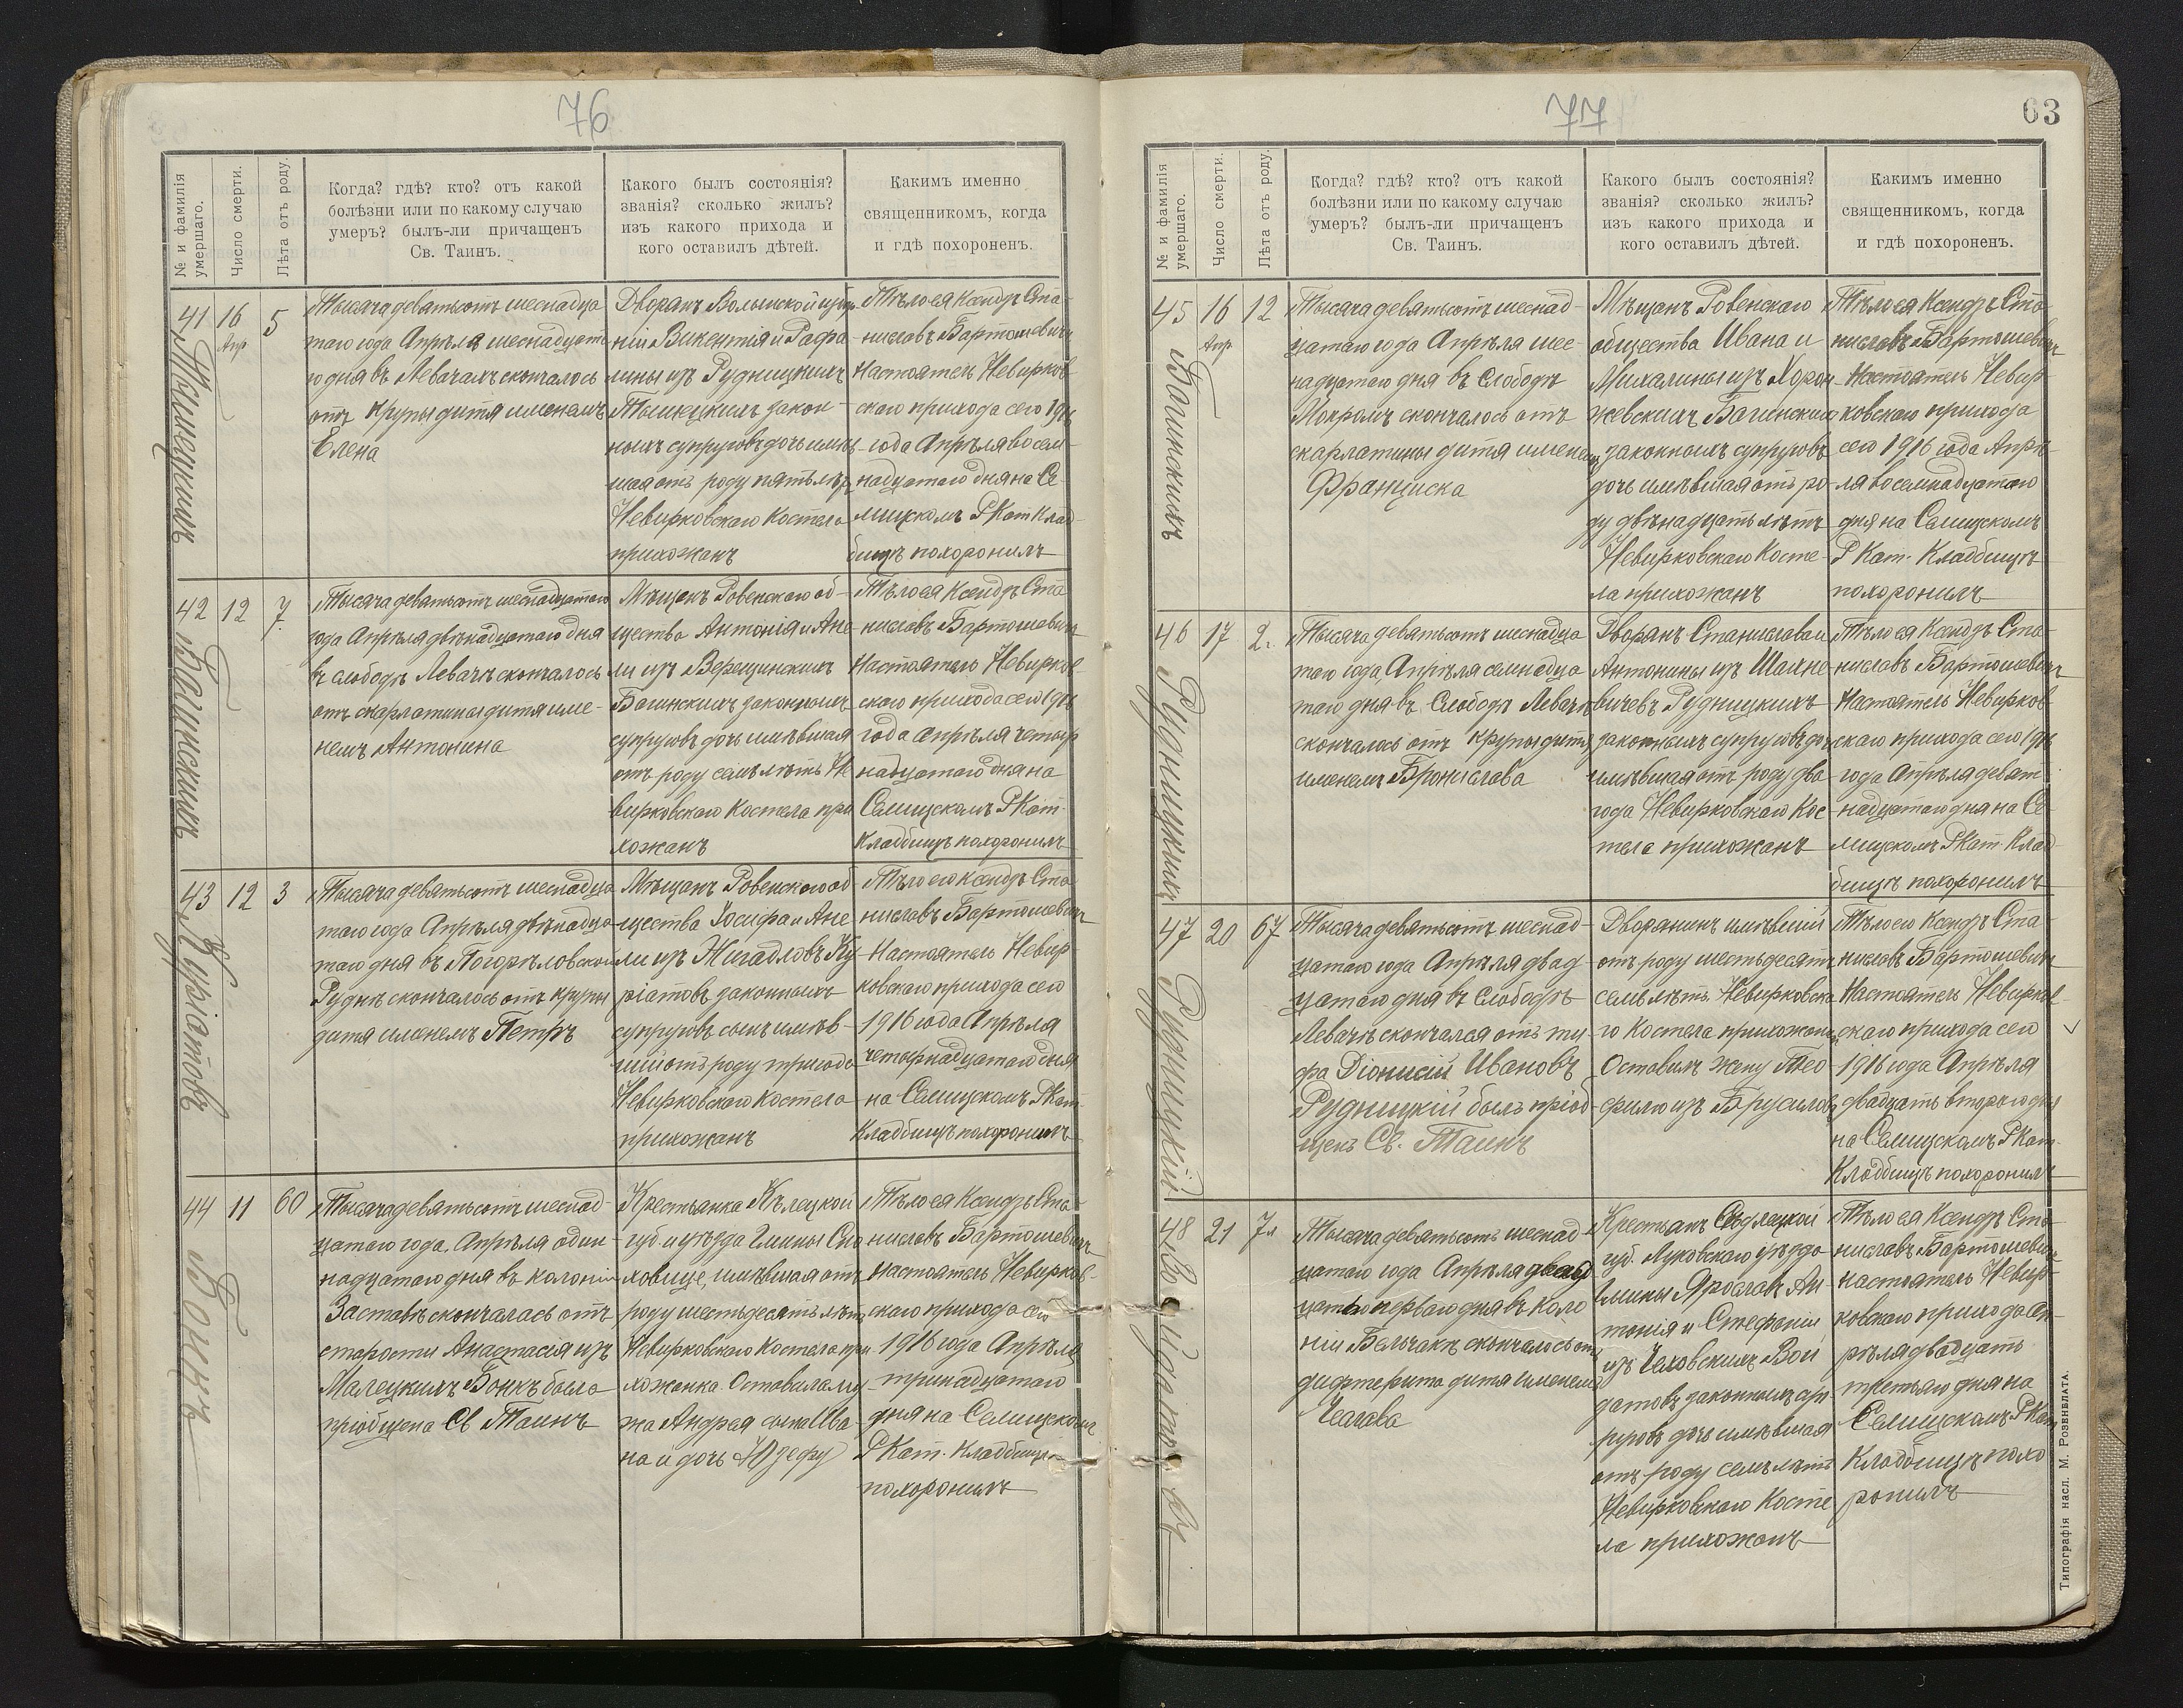 76
№ и фамилія умершаго.
Число смерти.
Лѣта отъ роду.
Когда? гдѣ? кто? отъ какой
болѣзни или по какому случаю
умеръ? былъ-ли причащенъ
Св. Таинъ.
Какого былъ состоянія?
званія? сколько жилъ?
изъ какого прихода и
кого оставилъ дѣтей.
Какимъ именно
священникомъ, когда
и гдѣ похороненъ.
41
16
Апр
5
Тысяча девятьсотъ шеснадца
таго года Апрѣля шеснадцата
го дня въ Левачахъ скончалось
отъ крупы дитя именемъ
Елена
Дворянъ Волынской губер
ніи Викентія и Рафа
лины изъ Рудницкихъ
закон
ныхъ супруговъ дочь имѣв
шая отъ роду пять лѣтъ
Невирковскаго Костела
прихожанъ
Тѣло ея Ксендзъ Ста
ниславъ Бартошевичъ
Настоятель Невирков
скаго прихода сего 1916
года Апрѣля восем
надцатаго дня на Се
лищскомъ РКат Клад
бищѣ похоронилъ
42
12
7
Багинскихъ
Тысяча девятьсотъ шеснадцатаго
года Апрѣля двѣнадцатаго дня
въ слободѣ Левачѣ скончалось
отъ скарлатины дитя име-
немъ Антонина
Мѣщанъ Ровенского об-
щества Антонія и Ане
ли изъ Верещинскихъ
Багинскихъ законныхъ
супруговъ дочь имѣвшая
отъ роду семь лѣтъ Не
вирковскаго Костела при
хожанъ
Тѣло ея Ксендзъ Ста
ниславъ Бартошевичъ
Настоятель Невирков
скаго прихода сего 1916
года Апрѣля четыр
надцатаго дня на
Селищскомъ РКат.
Кладбищѣ похоронилъ
43
12
3
Куріатовъ
Тысяча девятьсотъ шеснадца
таго года Апрѣля двѣнадца
таго дня въ Погорѣловской
Руднѣ скончалось отъ крупы
дитя именемъ Петръ
Мѣщанъ Ровенского об
щества Іосифа и Ане
ли изъ Жигадловъ Ку-
ріатовъ законныхъ
супруговъ сынъ имѣв-
шій отъ роду три года
Невирковскаго Костела
прихожанъ
Тѣло его Ксендзъ Ста
ниславъ Бартошевичъ
Настоятель Невир-
ковскаго прихода сего
1916 года Апрѣля
четырнадцатаго дня
на Селищскомъ РКат.
Кладбищѣ похоронилъ
44
11
60
Бонкъ
Тысяча девятьсотъ шеснад-
цатаго года, Апрѣля один-
надцатаго дня въ колоніи
Заставѣ скончалась отъ
старости Анастасія изъ
Малецкихъ Бонкъ была
пріобщена Св Таинъ
Крестьянка Кѣлецкой
губ. и уѣзда Гмины
имѣвшая отъ
роду шестьдесятъ лѣтъ
Невирковскаго Костела при
хожанка. Оставила му-
жа Андрея сына Ива-
на и дочь Юзефу
Тѣло ея Ксендзъ Ста-
ниславъ Бартошевичъ
Настоятель Невирков-
скаго прихода сего
1916 года Апрѣля
тринадцатаго
дня на Селищскомъ
РКат. Кладбищѣ
похоронилъ
77
63
№ и фамилія умершаго.
Число смерти.
Лѣта отъ роду.
Когда? гдѣ? кто? отъ какой
болѣзни или по какому случаю
умеръ? былъ-ли причащенъ
Св. Таинъ.
Какого былъ состоянія?
званія? сколько жилъ?
изъ какого прихода и
кого оставилъ дѣтей.
Какимъ именно
священникомъ, когда
и гдѣ похороненъ.
45
16
Апр
12
Багинскихъ
Тысяча девятьсотъ шеснад-
цатаго года Апрѣля шес
надцатаго дня въ слободѣ
Мокромъ скончалось отъ
скарлатины дитя именемъ
Франциска
Мѣщанъ Ровенскаго
общества Ивана и
Михалины изъ Хорон
жевскихъ Багинскихъ
законныхъ супруговъ
дочь имѣвшая отъ ро-
ду двѣнадцать лѣтъ
Невирковскаго Косте-
ла прихожанъ
Тѣло ея Ксендзъ Ста-
ниславъ Бартошевичъ
Настоятель Невир-
ковскаго прихода
сего 1916 года Апрѣ-
ля восемнадцатаго
дня на Селищскомъ
РКат. Кладбищѣ
похоронилъ
46
17
2.
Рудницкихъ
Тысяча девятьсотъ шеснадца
таго года, Апрѣля семнадца
таго дня въ Слободѣ Левачѣ
скончалось отъ крупы дитя
именемъ Бронислава
Дворянъ Станислава и
Антонины изъ Шахне
вичевъ Рудницкихъ
законныхъ супруговъ дочь
имѣвшая отъ роду два
года Невирковскаго Кос
тела прихожанъ
Тѣло ея Ксендзъ Ста-
ниславъ Бартошевичъ
Настоятель Невирков
скаго прихода сего 1916
года Апрѣля девят
надцатаго дня на Се
лищскомъ РКат. Клад
бищѣ похоронилъ
47
20
67
Рудницкій
Тысяча девятьсотъ шеснад-
цатаго года Апрѣля двад-
цатаго дня въ слободѣ
Левачѣ скончался отъ ти-
фа Діонисій Ивановъ
Рудницкій былъ пріоб-
щенъ Св. Таинъ
Дворянинъ имѣвшій
отъ роду шестьдесятъ
семь лѣтъ Невирковска
го Костела прихожанинъ
Оставилъ жену Тео
филю изъ Брусиловъ
Тѣло его Ксендзъ Ста
ниславъ Бартошевичъ
Настоятель Невирков
скаго прихода сего
1916 года Апрѣля
двадцать второго дня
на Селищскомъ РКат.
Кладбищѣ похоронилъ
48
21
7л
Войдатовъ
Тысяча девятьсотъ шеснад
цатаго года Апрѣля двад
цать перваго дня въ Коло
ніи Бельчакѣ скончалось отъ
дифтерита дитя именемъ
Чеслава
Крестьянъ Сѣдлецкой
губ. Луковскаго уѣзда
гмины Ярославъ Ан
тонія и Стефаніи
изъ Чеховскихъ Вой
датовъ законныхъ суп
руговъ дочь имѣвшая
отъ роду семь лѣтъ
Невирковскаго Косте
ла прихожанъ
Тѣло ея Ксендзъ Ста-
ниславъ Бартошевичъ
настоятель Невир-
ковскаго прихода Ап-
рѣля двадцать
третьяго дня на
Селищскомъ РКат
Кладбищѣ похо
ронилъ
Типографія насл. М. Розенблата.